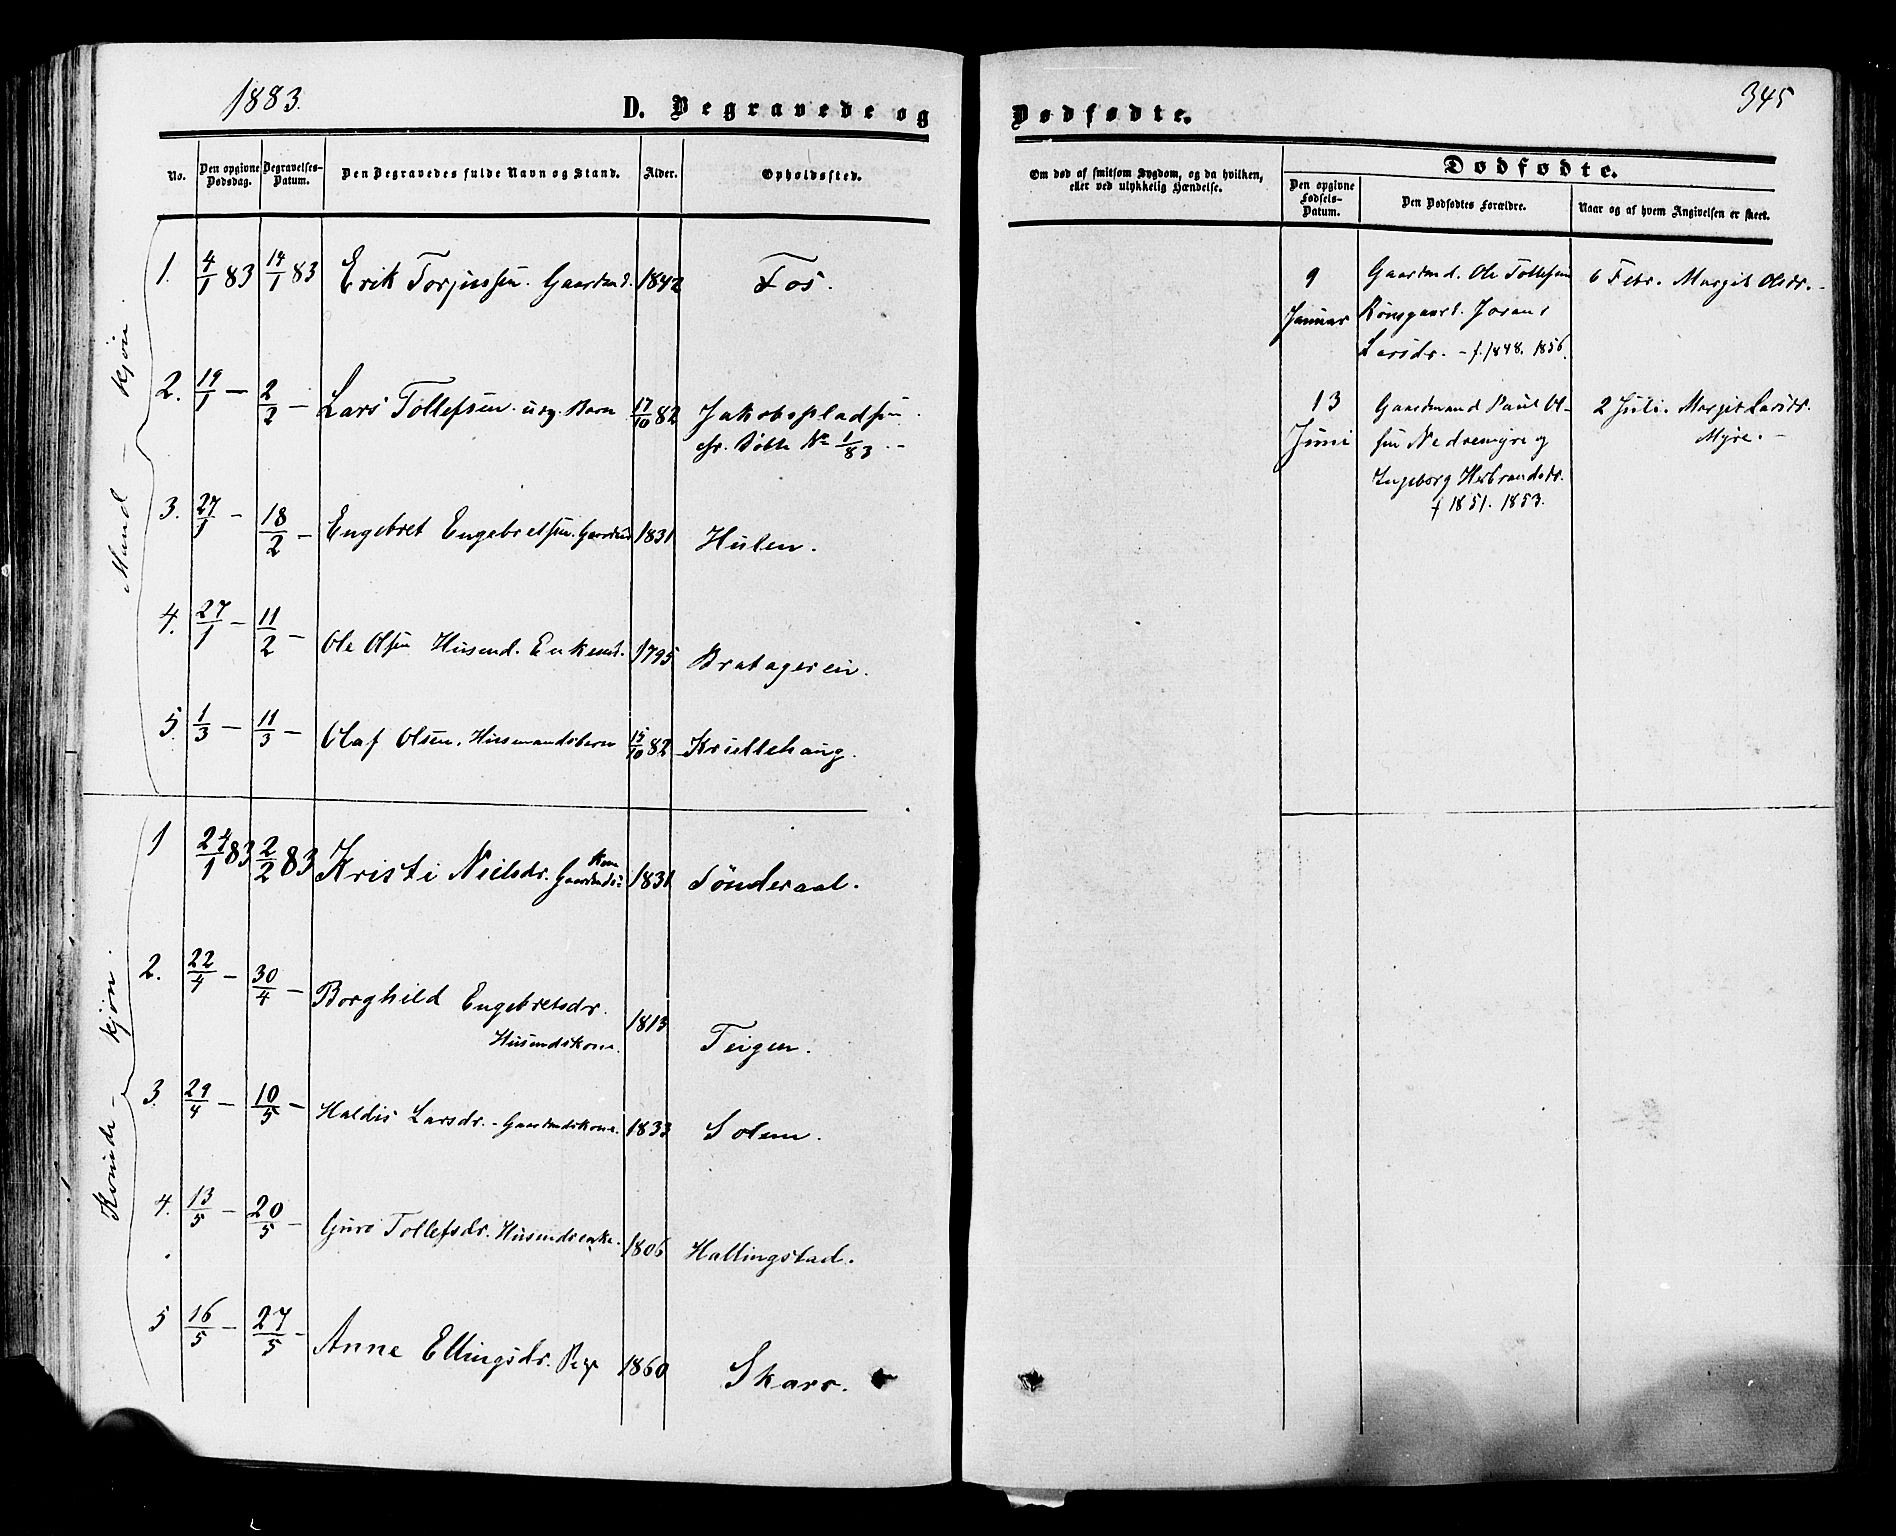 1883.
D. Begravede og
No. Den opgivne Dødsdag. Begravelses-Datum. Den Begravedes fulde Navn og Stand. Alder. Opholdssted.
Mand - kjön.
1. 4/1 83 14/1 83 Erik Torjussen. Gaardmd. 1842 Fos.
2. 19/1 - 2/2 - Lars Tollefsen. Barn 17/10 82 Jakobspladsen.
cfr. Döbte No 1/83. -
3. 27/1 - 18/2 - Engebret Engebretsen. Gaardmd 1831 Hulen.
4. 27/1 - 11/2 - Ole Olsen Husmd. Enkemd. 1795 Bratageren.
5. 1/3 - 11/3 - Olaf Olsen. Husmandsbarn 15/10 82 Kruttehaug.
Kvinde - kjön.
1 24/1 83 2/2 83 Kristi Nielsdr. Gaardmds: Kone 1831 Sönderaal.
2. 22/4 - 30/4 - Borghild Engebretsdr.
Husmdskone. 1813 Teigen.
3. 29/4 - 10/5 - Haldis Larsdr. - Gaardmdskone. 1833 Solem.
4. 13/5 - 20/5 - Guro Tollefsdr. Husmdsenke. 1806 Hallingstad.
5 16/5 - 27/5 - Anne Ellingsdr. Pige 1860 Skaro.
345
Dødfødte.
Om død af smitsom Sygdom, og da hvilken,
eller ved ulykkelig Hændelse.
Dødfødte.
Den opgivne Fødsels-Datum. Den Dødfødtes Forældre. Naar og af hvem Angivelsen er skeet.
9 Januar
Gaardmd. Ole Tollefsen
Rönsgaard. Joran
Larsdr. - f. 1848. 1856.
6 Febr. Margit Olsdr. -
13 Juni
Gaardmand Paul Ol-
sen Nedremyre og
Ingeborg Herbrandsdr.
f 1851. 1853.
2 Juli. Margit Larsdr.
Myre. -